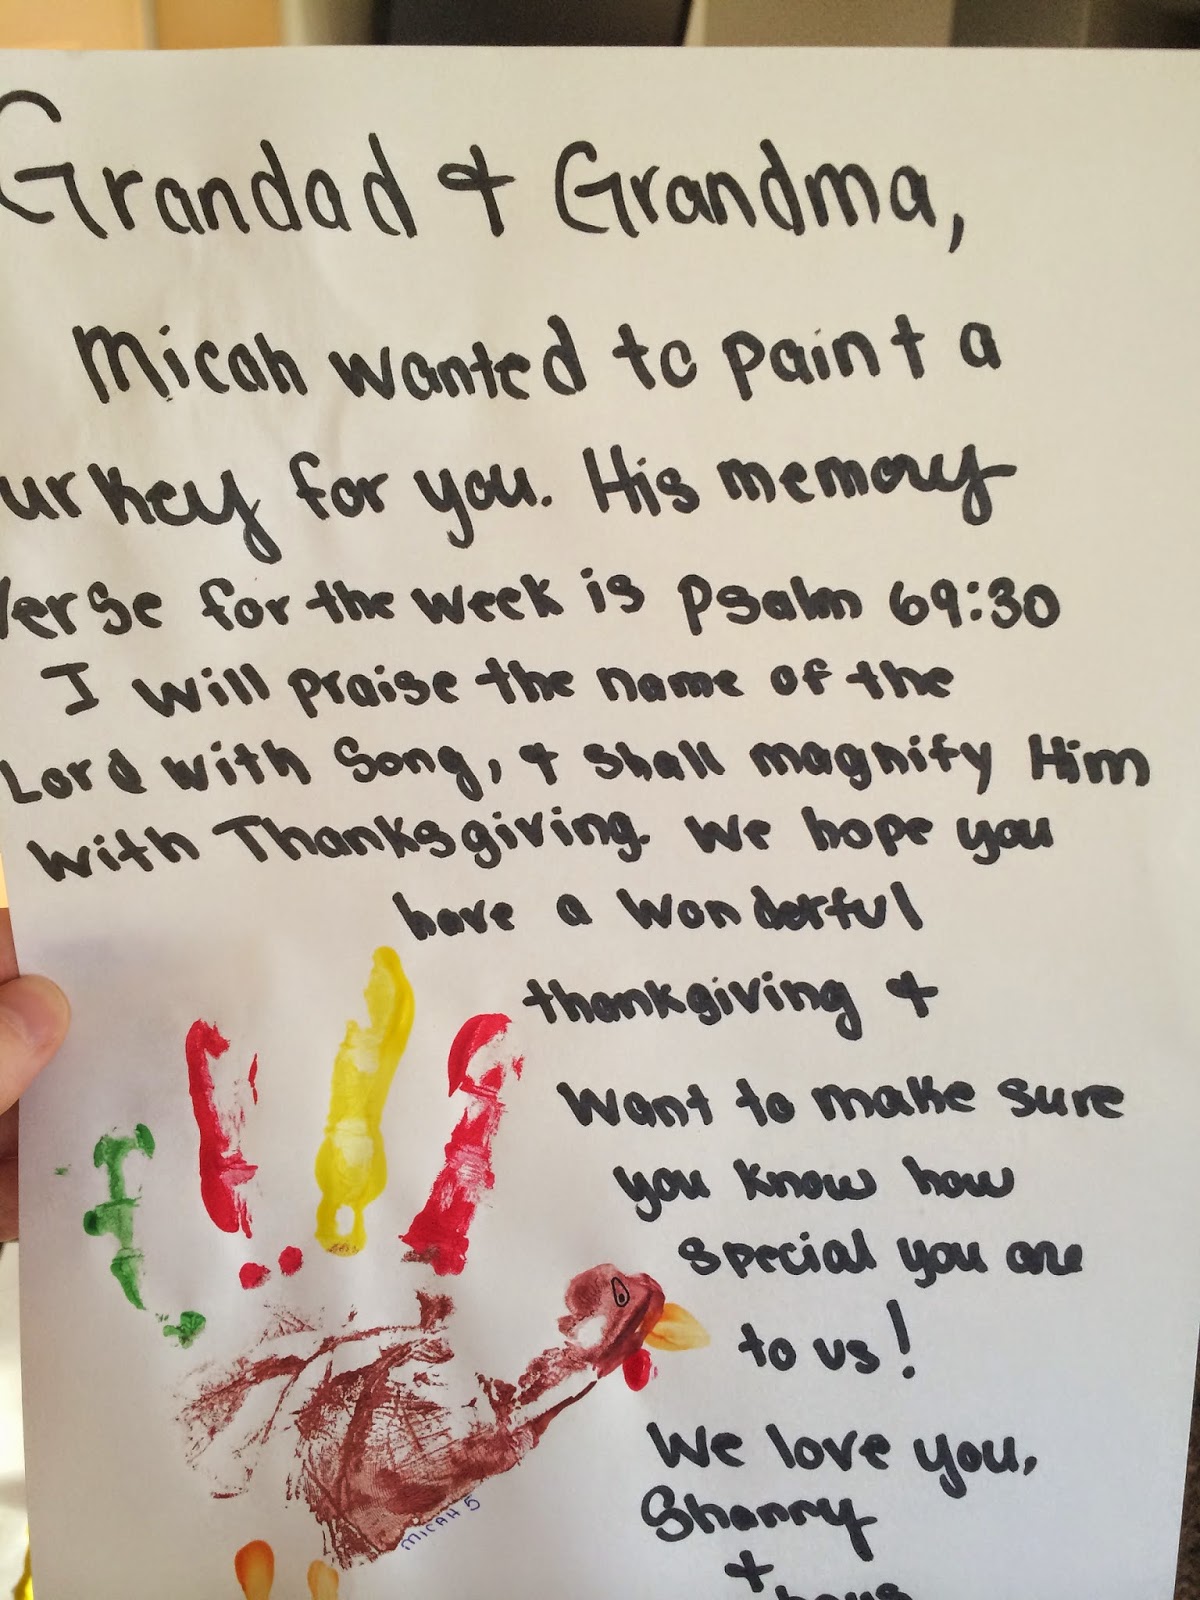 Grandad & Grandma,
Micah wanted to paint a
urkey for you. His memory
Verse for the week is Psalm 69:30
I will praise the name of the
Lord with Song, & shall magnify Him
with Thanksgiving. We hope you
have a wonderful
thanksgiving &
want to make sure
you know how
special you are
to us!
We love you,
Shanny
+
boys
MICAH 5